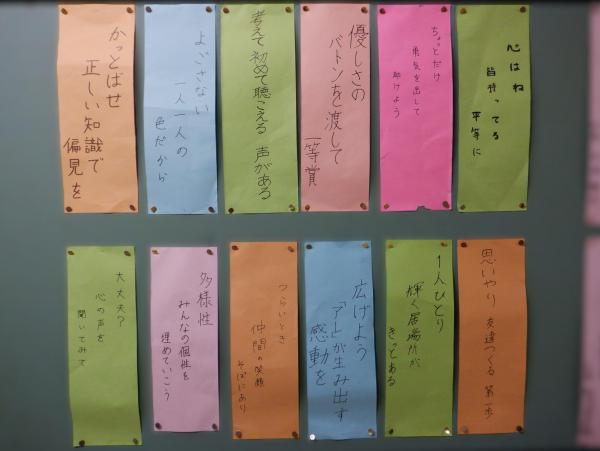 心はね
皆持ってる
平等に
ちょっとだけ
勇気を出して
助けよう
優しさの
バトンを渡して
一等賞
考えて初めて聴こえる 声がある
よごさない
一人一人の
色だから
かっとばせ
正しい知識で
偏見を
思いやり 友達つくる 第一歩
1人ひとり
輝く居場所が
きっとある
広げよう
「アート」が生み出す
感動を
つらいとき
仲間の笑顔
そばにあり
多様性
みんなの個性を
埋めていこう
大丈夫?
心の声を
聞いてみて